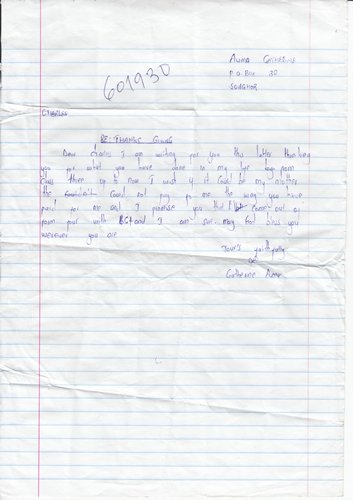 AUMA CATHERINE
P O BOX 30
SONGHOR
601930
CHARLES
RE: THANKS GIVING
Dear charles I am writing for you this latter thanking
you for what you have done in my life bega from
class three up to now I want y it could be my mother
the could not pay for me the way you have
paid for me and I promise you that I come out of
form four with BC+ and I am sure. may God bless you
wherever you are
Your's faithfully
Catherine Auma